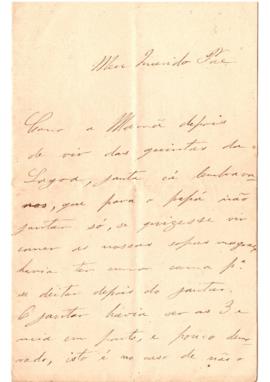 Meu Querido Pae
Como a Mamã depois
de vir das quintas da
Lagoa, janta cá lembrava-
nos, que para o papá não
jantar só, se quizesse vir
comer as nossas sopas magras,
havia ter uma cama p.ª
se deitar depois do jantar.
O jantar havia ser as 3 e
meia em ponto, e pouco demo
rado, isto é no caso de não